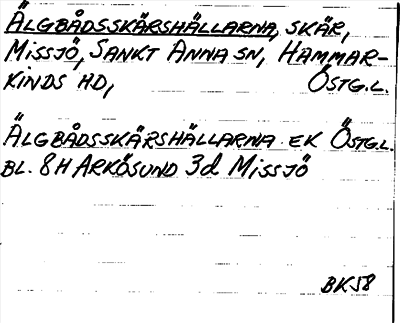 ÄLGBÅDSSKÄRSHÄLLARNA, SKÄR,
MISSJÖ, SANKT ANNA SN, HAMMAR-
KINDS HD, ÖSTG.L.
ÄLGBÅDSSKÄRSHÄLLARNA EK ÖSTG.L.
BL. 8H ARKÖSUND 3d MISSJÖ
BK58